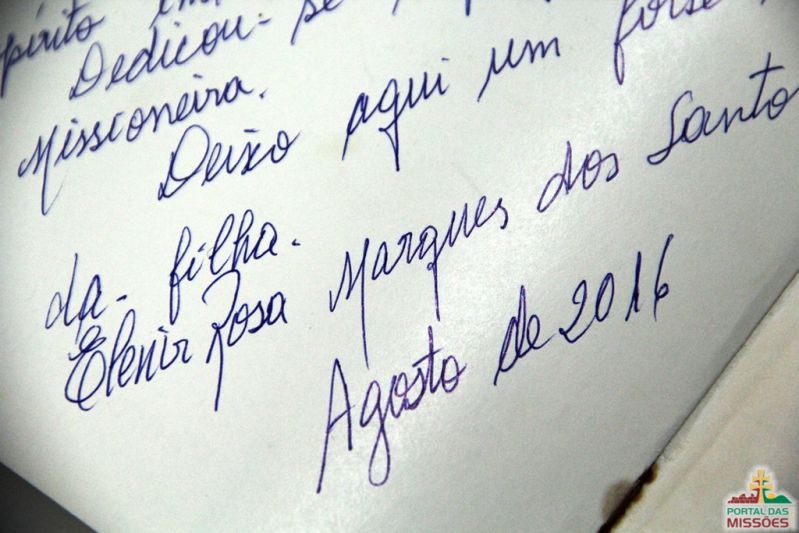 Dedicou-se
Missioneira.
Deixo aqui um
da filha.
Elenir Rosa Marques dos Santo
Agosto de 2016
PORTAL DAS
MISSÕES